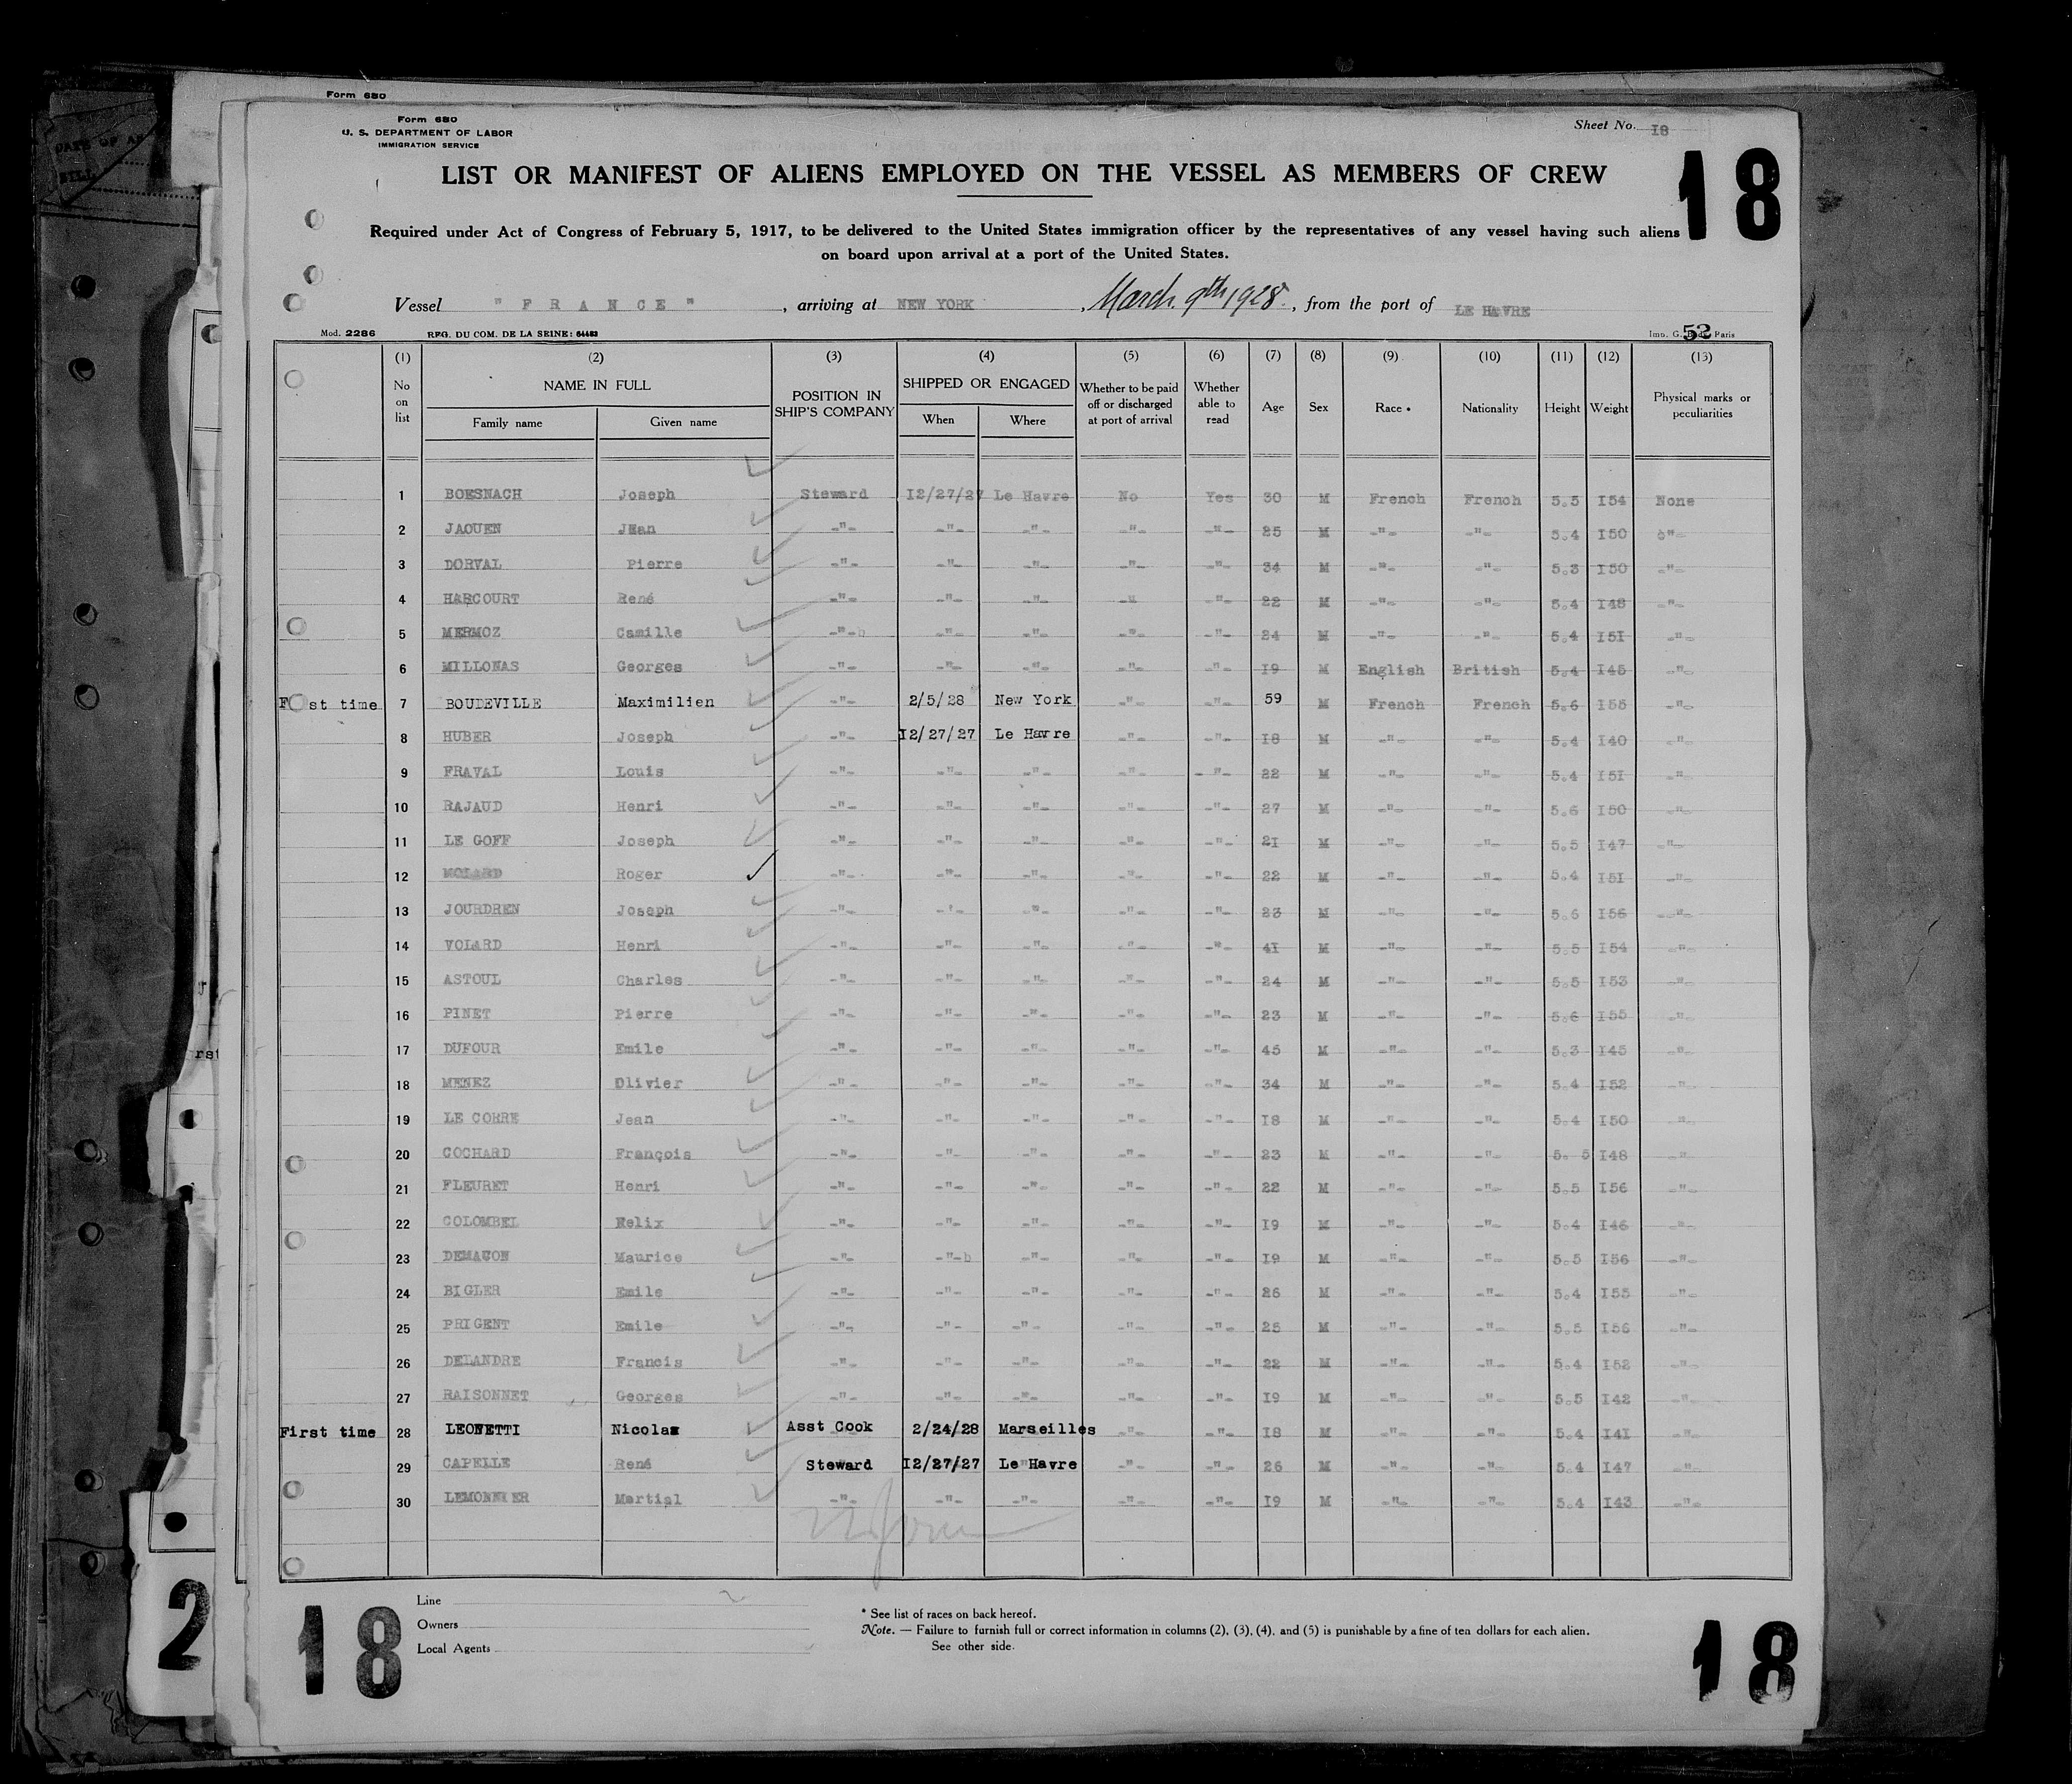 Form 680
Form 680
U. S. DEPARTMENT OF LABOR
IMMIGRATION SERVICE
Sheet No. I8
18
LIST OR MANIFEST OF ALIENS EMPLOYED ON THE VESSEL AS MEMBERS OF CREW
Required under Act of Congress of February 5, 1917, to be delivered to the United States immigration officer by the representatives of any vessel having such aliens
on board upon arrival at a port of the United States.
Vessel " F R A N C E ", arriving at NEW YORK, March 9th 1928, from the port of LE HAVRE
Mod. 2286 REG. DU COM. DE LA SEINE: 64483 Imp. G. Paris
52
(1) (2) (3) (4) (5) (6) (7) (8) (9) (10) (11) (12) (13)
No on list NAME IN FULL Family name Given name POSITION IN SHIP'S COMPANY SHIPPED OR ENGAGED When Where Whether to be paid off or discharged at port of arrival Whether able to read Age Sex Race * Nationality Height Weight Physical marks or peculiarities
1 BOESNACH Joseph Steward I2/27/27 Le Havre No Yes 30 M French French 5.5 I54 None
2 JAOUEN Jean -"- -"- -"- -"- -"- 25 M -"- -"- 5.4 I50 -"-
3 DORVAL Pierre -"- -"- -"- -"- -"- 34 M -"- -"- 5.3 I50 -"-
4 HARCOURT René -"- -"- -"- -"- -"- 22 M -"- -"- 5.4 I48 -"-
5 MERMOZ Camille -"- -"- -"- -"- -"- 24 M -"- -"- 5.4 I5I -"-
6 MILLONAS Georges -"- -"- -"- -"- -"- I9 M English British 5.4 I45 -"-
F st time 7 BOUDEVILLE Maximilien -"- 2/5/28 New York -"- -"- 59 M French French 5.6 I55 -"-
8 HUBER Joseph -"- I2/27/27 Le Havre -"- -"- I8 M -"- -"- 5.4 I40 -"-
9 FRAVAL Louis -"- -"- -"- -"- -"- 22 M -"- -"- 5.4 I5I -"-
10 RAJAUD Henri -"- -"- -"- -"- -"- 27 M -"- -"- 5.6 I50 -"-
11 LE GOFF Joseph -"- -"- -"- -"- -"- 2I M -"- -"- 5.5 I47 -"-
12 MOLARD Roger -"- -"- -"- -"- -"- 22 M -"- -"- 5.4 I5I -"-
13 JOURDREN Joseph -"- -"- -"- -"- -"- 23 M -"- -"- 5.6 I56 -"-
14 VOLARD Henri -"- -"- -"- -"- -"- 4I M -"- -"- 5.5 I54 -"-
15 ASTOUL Charles -"- -"- -"- -"- -"- 24 M -"- -"- 5.5 I53 -"-
16 PINET Pierre -"- -"- -"- -"- -"- 23 M -"- -"- 5.6 I55 -"-
17 DUFOUR Emile -"- -"- -"- -"- -"- 45 M -"- -"- 5.3 I45 -"-
18 MENEZ Olivier -"- -"- -"- -"- -"- 34 M -"- -"- 5.4 I52 -"-
19 LE CORRE Jean -"- -"- -"- -"- -"- I8 M -"- -"- 5.4 I50 -"-
20 COCHARD François -"- -"- -"- -"- -"- 23 M -"- -"- 5. 5 I48 -"-
21 FLEURET Henri -"- -"- -"- -"- -"- 22 M -"- -"- 5.5 I56 -"-
22 COLOMBEL Felix -"- -"- -"- -"- -"- I9 M -"- -"- 5.4 I46 -"-
23 DEMACON Maurice -"- -"- -"- -"- -"- I9 M -"- -"- 5.5 I56 -"-
24 BIGLER Emile -"- -"- -"- -"- -"- 26 M -"- -"- 5.4 I55 -"-
25 PRIGENT Emile -"- -"- -"- -"- -"- 25 M -"- -"- 5.5 I56 -"-
26 DELANDRE Francis -"- -"- -"- -"- -"- 22 M -"- -"- 5.4 I52 -"-
27 RAISONNET Georges -"- -"- -"- -"- -"- I9 M -"- -"- 5.5 I42 -"-
First time 28 LEONETTI Nicolas Asst Cook 2/24/28 Marseilles -"- -"- I8 M -"- -"- 5.4 I4I -"-
29 CAPELLE René Steward I2/27/27 Le Havre -"- -"- 26 M -"- -"- 5.4 I47 -"-
30 LEMONNIER Martial -"- -"- -"- -"- -"- I9 M -"- -"- 5.4 I43 -"-
Line
Owners
Local Agents
* See list of races on back hereof.
Note. — Failure to furnish full or correct information in columns (2), (3), (4), and (5) is punishable by a fine of ten dollars for each alien.
See other side.
2
18
18